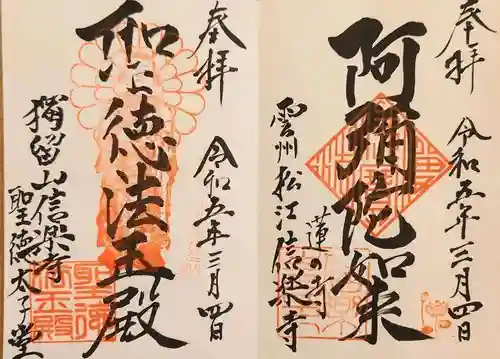 奉拝
令和五年三月四日
阿彌陀如来
雲州松江
蓮の寺
信楽寺
奉拝
令和五年三月四日
聖徳法王殿
獨留山信楽寺
聖徳太子堂